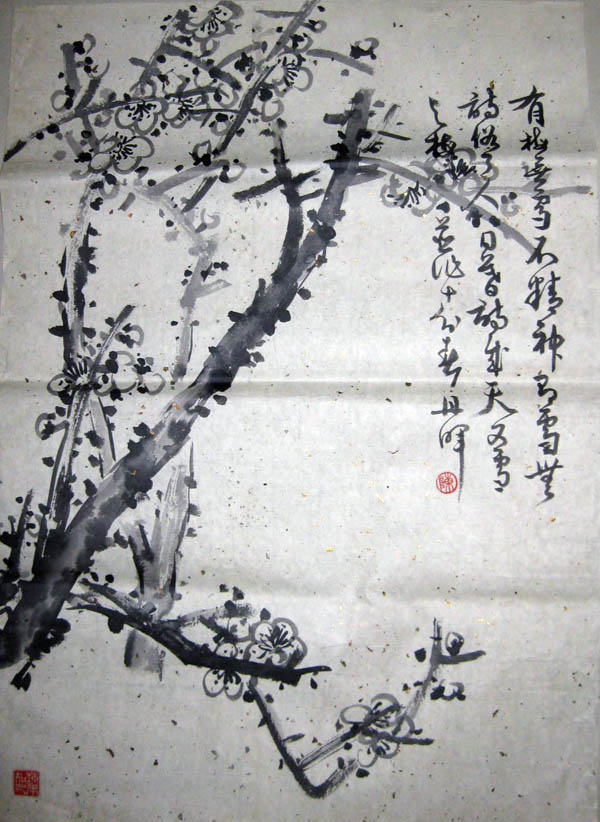 有梅無雪不精神有雪無
詩俗了人日暮詩成天又雪
与梅並作十分春丹暉
陳